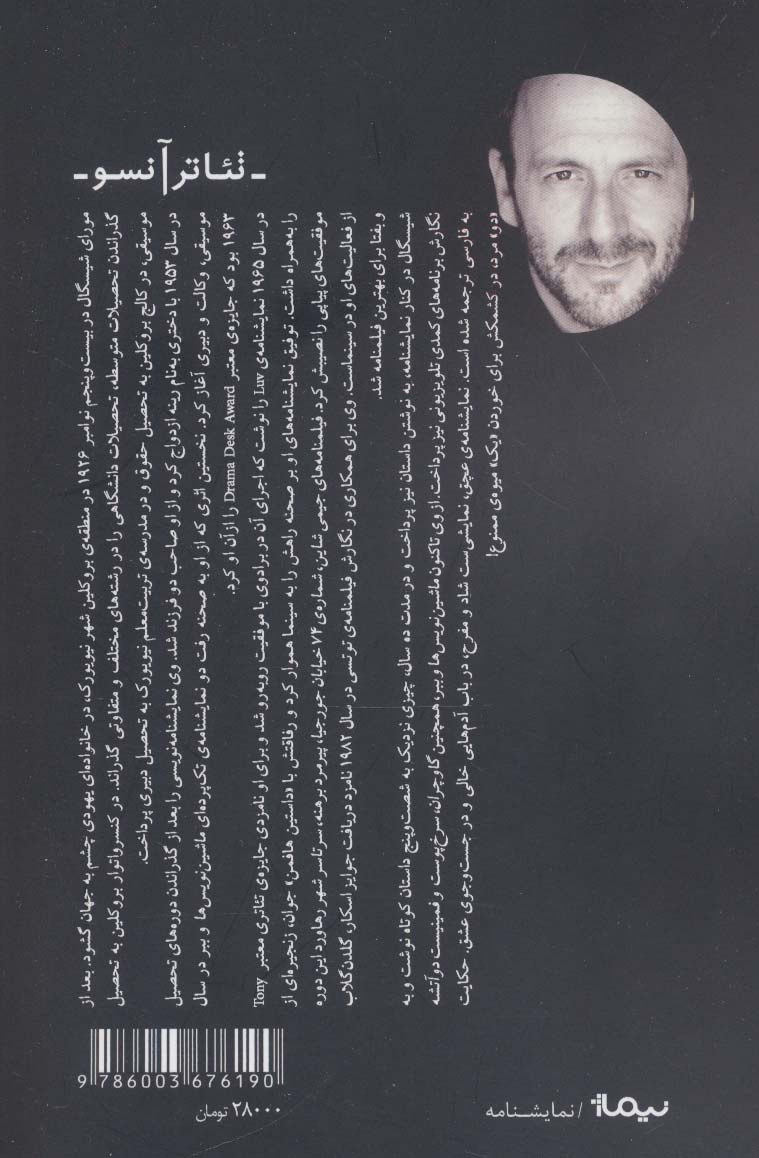 ـ تئاتر آنسو ـ
مورای شیسگال در بیست‌وپنجم نوامبر ۱۹۲۶ در منطقه‌ی بروکلین شهر نیویورک، در خانواده‌ای یهودی چشم به جهان گشود. بعد از
گذراندن تحصیلات متوسطه، تحصیلات دانشگاهی را در رشته‌های مختلف و متفاوتی گذراند. در کنسرواتوار بروکلین به تحصیل
موسیقی، در کالج بروکلین به تحصیل حقوق و در مدرسه‌ی تربیت‌معلم نیویورک به تحصیل دبیری پرداخت.
در سال ۱۹۵۳ با دختری به‌نام رینه ازدواج کرد و از او صاحب دو فرزند شد. وی نمایشنامه‌نویسی را بعد از گذراندن دوره‌های تحصیل
موسیقی، وکالت و دبیری آغاز کرد. نخستین اثری که از او به صحنه رفت دو نمایشنامه‌ی تک‌پرده‌ای ماشین‌نویس‌ها و ببر در سال
۱۹۶۳ بود که جایزه‌ی معتبر Drama Desk Award را از آن او کرد.
در سال ۱۹۶۵ نمایشنامه‌ی Luv را نوشت که اجرای آن در برادوی با موفقیت روبه‌رو شد و برای او نامزدی جایزه‌ی تئاتری معتبر Tony
را به‌همراه داشت. توفیق نمایشنامه‌های او بر صحنه راهش را به سینما هموار کرد و رفاقتش با «داستین هافمن» جوان، زنجیره‌ای از
موفقیت‌های پیاپی را نصیبش کرد. فیلمنامه‌های جیمی شاین، شماره‌ی ۷۴ خیابان جورجیا، پیرمرد برهنه، سرتاسر شهر رهاورد این دوره
از فعالیت‌های او در سینماست. وی برای همکاری در نگارش فیلمنامه‌ی توتسی در سال ۱۹۸۲ نامزد دریافت جوایز اسکار، گلدن‌گلاب
و بفتا برای بهترین فیلمنامه شد.
شیسگال در کنار نمایشنامه، به نوشتن داستان نیز پرداخت و در مدت ده سال، چیزی نزدیک به شصت‌وپنج داستان کوتاه نوشت و به
نگارش برنامه‌های کمدی تلویزیونی نیز پرداخت. از وی تاکنون ماشین‌نویس‌ها و ببر، همچنین گاوچران، سرخ‌پوست و فمینیست دوآتشه
به فارسی ترجمه شده است. نمایشنامه‌ی عچق، نمایشی‌ست شاد و مفرح، در باب آدم‌هایی خالی و در جست‌وجوی عشق. حکایت
«دو» مرده در کشمکش برای خوردن «یک» میوه‌ی ممنوع!
9 786003 676190
۲۸۰۰۰ تومان
نیماژ / نمایشنامه